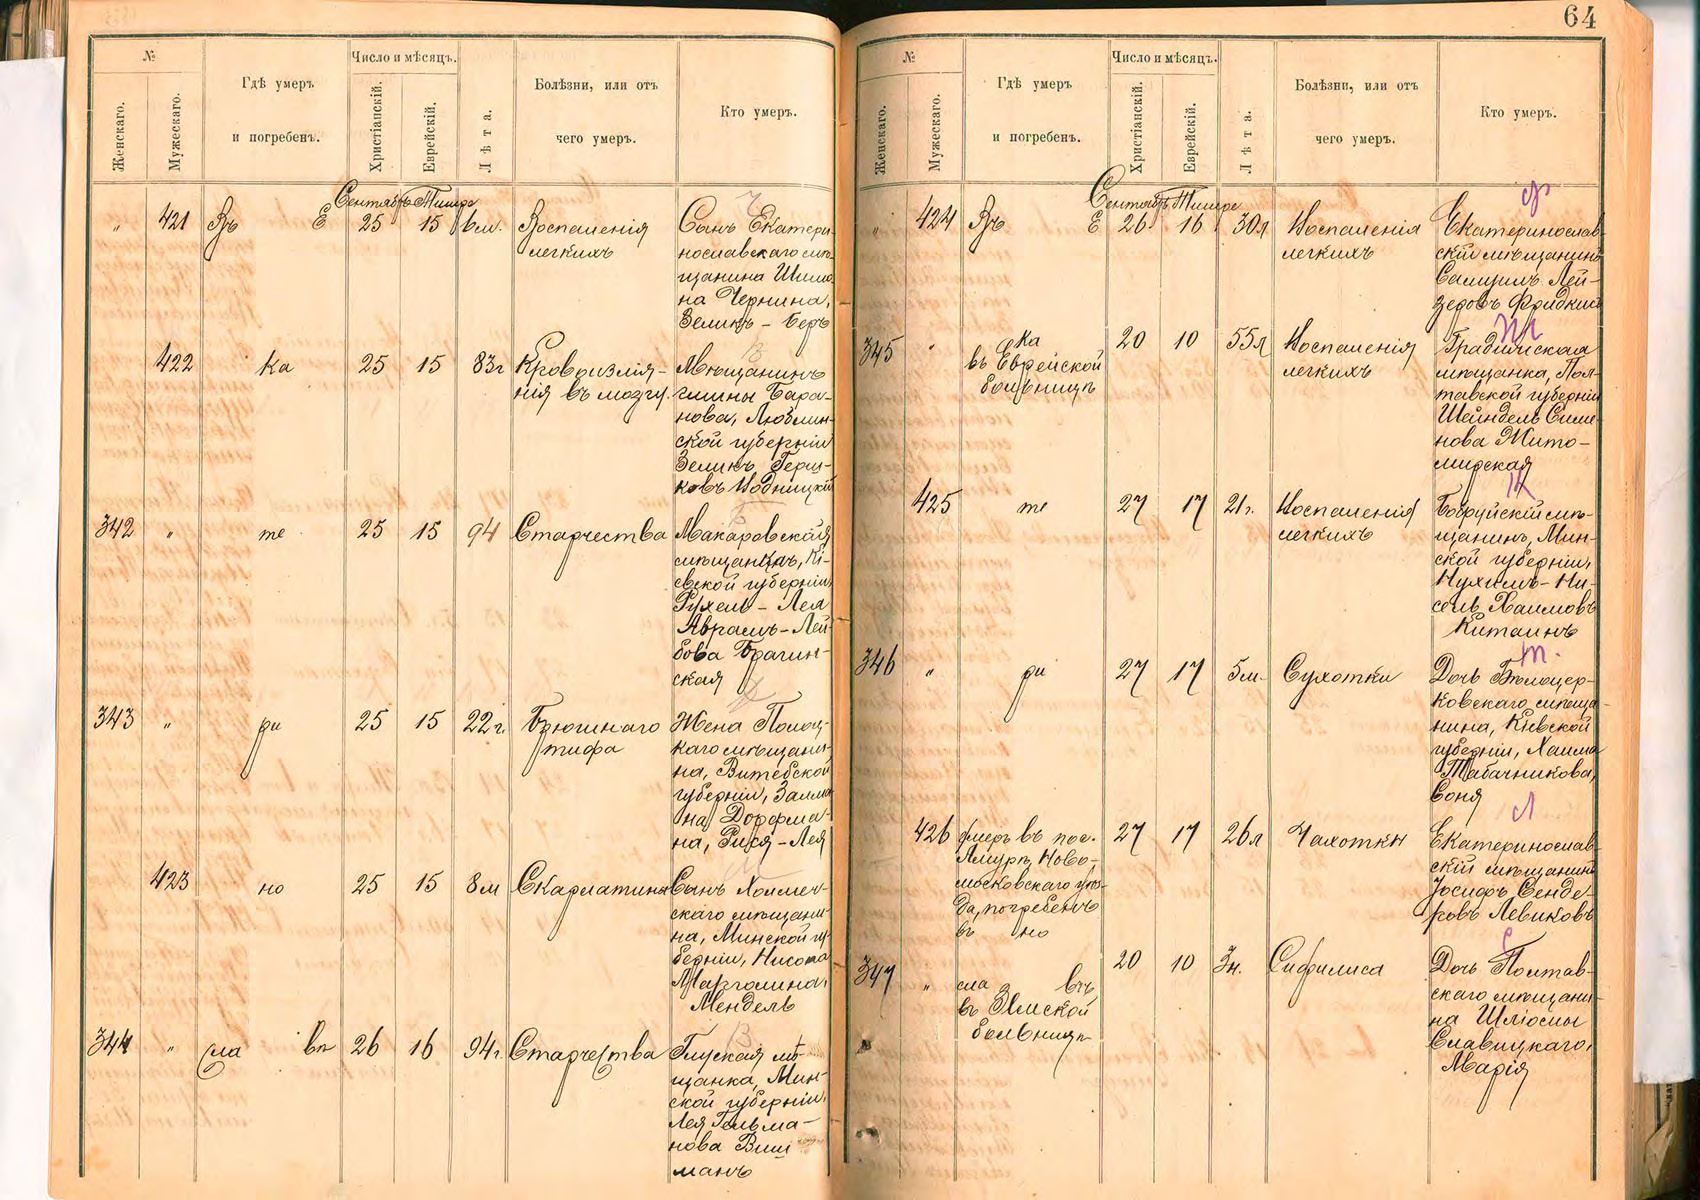 №
Женскаго.
Мужескаго.
Гдѣ умеръ
и погребенъ.
Число и мѣсяцъ.
Христіанскій.
Еврейскій.
Лѣта.
Болѣзни, или отъ
чего умеръ.
Кто умеръ.
Сентябрь Тишре
" 421 Въ Е 25 15 6м. Воспаленія
легкихъ
Сынъ Екатери-
нославскаго мѣ-
щанина Шимо-
на Чернина,
Зеликъ - Беръ
422 ка 25 15 83г Кровоизлія-
нія въ мозгу.
Мѣщанинъ
гмины Бара-
нова, Люблин-
ской губерніи
Зеликъ Герш-
ковъ Водницкій
342 " те 25 15 94 Старчества
Макаровская
мѣщанка, Кі-
евской губерніи,
Рухель - Лея
Аврамъ - Лей-
бова Брагин-
ская
343 " ри 25 15 22г. Брюшнаго
тифа
Жена Полоц-
каго мѣщани-
на, Витебской
губерніи, Залма-
на Дорфма-
на, Рися - Лея
423 но 25 15 8м Скарлатина
Сынъ
скаго мѣщани-
на, Минской гу-
берніи, Нисона
Марголина,
Мендель
344 " сла вп 26 16 94г. Старчества
Глуская мѣ-
щанка, Мин-
ской губерніи,
Лея Гельма-
нова Виш
манъ
64
№
Женскаго.
Мужескаго.
Гдѣ умеръ
и погребенъ.
Число и мѣсяцъ.
Христіанскій.
Еврейскій.
Лѣта.
Болѣзни, или отъ
чего умеръ.
Кто умеръ.
Сентябрь Тишре
ф
" 424 Въ Е 26 16 30л Воспаленія
легкихъ
Екатеринослав-
скій мѣщанинъ
Самуилъ Лей-
зеровъ Фридкинъ
Ж
345 " ка
въ Еврейской
больницѣ
20 10 55л Воспаленія
легкихъ
Градижская
мѣщанка, Пол-
тавской губерніи
Шейндель Симе-
нова Жито-
мирская
К
425 те 27 17 21г. Воспаленія
легкихъ
Бобруйскій мѣ-
щанинъ, Мин-
ской губерніи,
Нухимъ - Ни-
сель Хаимовъ
Китаинъ
Т.
346 " ри 27 17 5м. Сухотки
Дочь Бѣлоцер-
ковскаго мѣща-
нина, Кіевской
губерніи, Хаима
Табачникова,
Соня
Л
426 Умеръ въ пос.
Амурѣ, Ново-
московскаго уѣз-
да, погребенъ
въ но
27 17 26л Чахотки
Екатеринослав-
скій мѣщанинъ
Іосифъ Сенде-
ровъ Левиковъ
С
347 " сла въ
въ Земской
больницѣ
20 10 3н. Сифилиса
Дочь Полтав-
скаго мѣщани-
на Шліомы
Славицкаго,
Марія